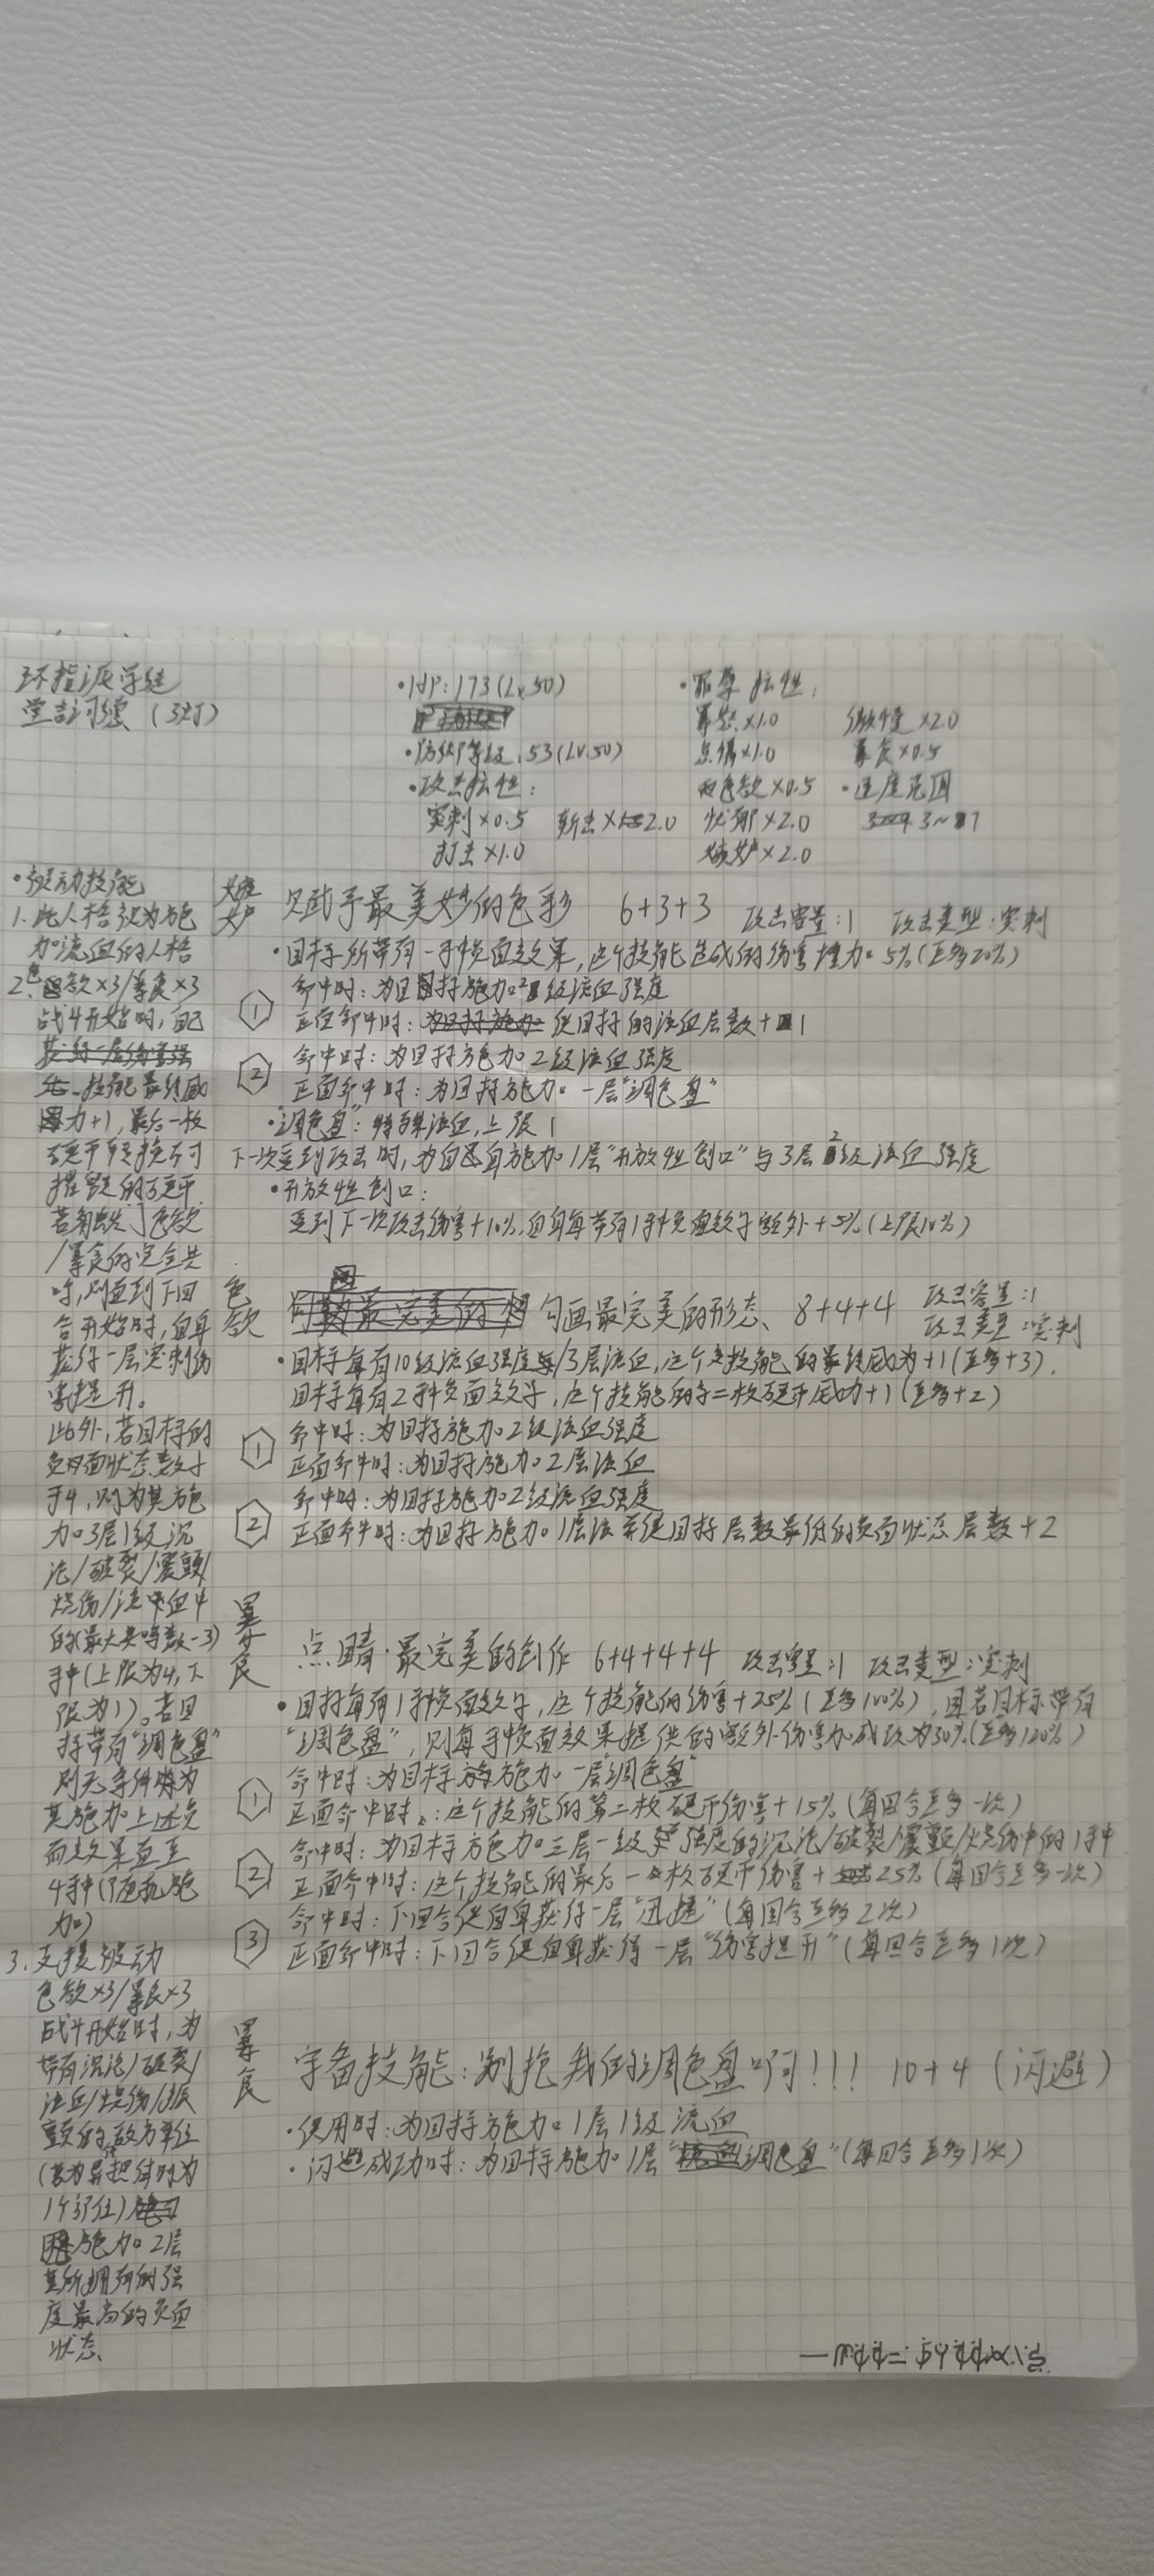 环指派学徒
堂吉诃德（3灯）
·HP：173（Lv.50）
·防御等级：53（LV.50）
·攻击抗性：
突刺×0.5 斩击×2.0
打击×1.0
·罪孽抗性：
暴怒×1.0 傲慢×2.0
怠惰×1.0 暴食×0.5
色欲×0.5 ·速度范围
忧郁×2.0 3~7
嫉妒×2.0
·被动技能
1.此人格视为施
加流血的人格
2.色欲×3/暴食×3
战斗开始时，自己
技能最终威
力+1，最后一枚
硬币转换不可
摧毁的硬币
若触发了色欲
/暴食的完全共
鸣，则直到下回
合开始时，自身
获得一层突刺伤
害提升。
此外，若目标的
负面状态数少
于4，则为其施
加3层1级沉
沦/破裂/震颤/
烧伤/流血中
的（最大共鸣数-3）
种（上限为4，下
限为1）。若目
标带有“调色盘”
则无条件为
其施加上述负
面效果直至
4种（随机施
加）
3.支援被动
色欲×3/暴食×3
战斗开始时，为
带有沉沦/破裂/
流血/烧伤/振
颤的敌方单位
（若为异想体时为
1个部位）
施加2层
其所拥有的强
度最高的负面
状态
嫉妒 赋予最美妙的色彩 6+3+3 攻击容量：1 攻击类型：突刺
·目标所带有一种负面效果，这个技能造成的伤害增加5%（至多20%）
① 命中时：为目标施加2级流血强度
正面命中时：使目标的流血层数+1
② 命中时：为目标施加2级流血强度
正面命中时：为目标施加一层“调色盘”
·“调色盘”：特殊流血，上限1
下一次受到攻击时，为自身施加1层“开放性创口”与3层2级流血强度
·开放性创口：
受到下一次攻击伤害+10%，自身每带有1种负面效果额外+5%（上限10%）
色欲 勾画最完美的形态、8+4+4 攻击容量：1
攻击类型：突刺
·目标每有10级流血强度/3层流血，这个技能的最终威力+1（至多+3）.
目标每有2种负面效果，这个技能的第二枚硬币威力+1（至多+2）
① 命中时：为目标施加2级流血强度
正面命中时：为目标施加2层流血
② 命中时：为目标施加2级流血强度
正面命中时：为目标施加1层流 并使目标层数最低的负面状态层数+2
暴食 点睛·最完美的创作 6+4+4+4 攻击容量：1 攻击类型：突刺
·目标每有1种负面效果，这个技能的伤害+25%（至多100%），且若目标带有
“调色盘”，则每种负面效果提供的额外伤害加成改为30%（至多120%）
① 命中时：为目标施加一层“调色盘”
正面命中时：这个技能的第二枚硬币伤害+15%（每回合至多一次）
② 命中时：为目标施加三层一级强度的沉沦/破裂/震颤/烧伤中的1种
正面命中时：这个技能的最后一枚硬币伤害+25%（每回合至多一次）
③ 命中时：下回合使自身获得一层“迅捷”（每回合至多2次）
正面命中时：下回合使自身获得一层“伤害提升”（每回合至多1次）
暴食 守备技能：别抢我的调色盘啊！！！ 10+4（闪避）
·使用时：为目标施加1层1级流血
·闪避成功时：为目标施加1层“调色盘”（每回合至多1次）